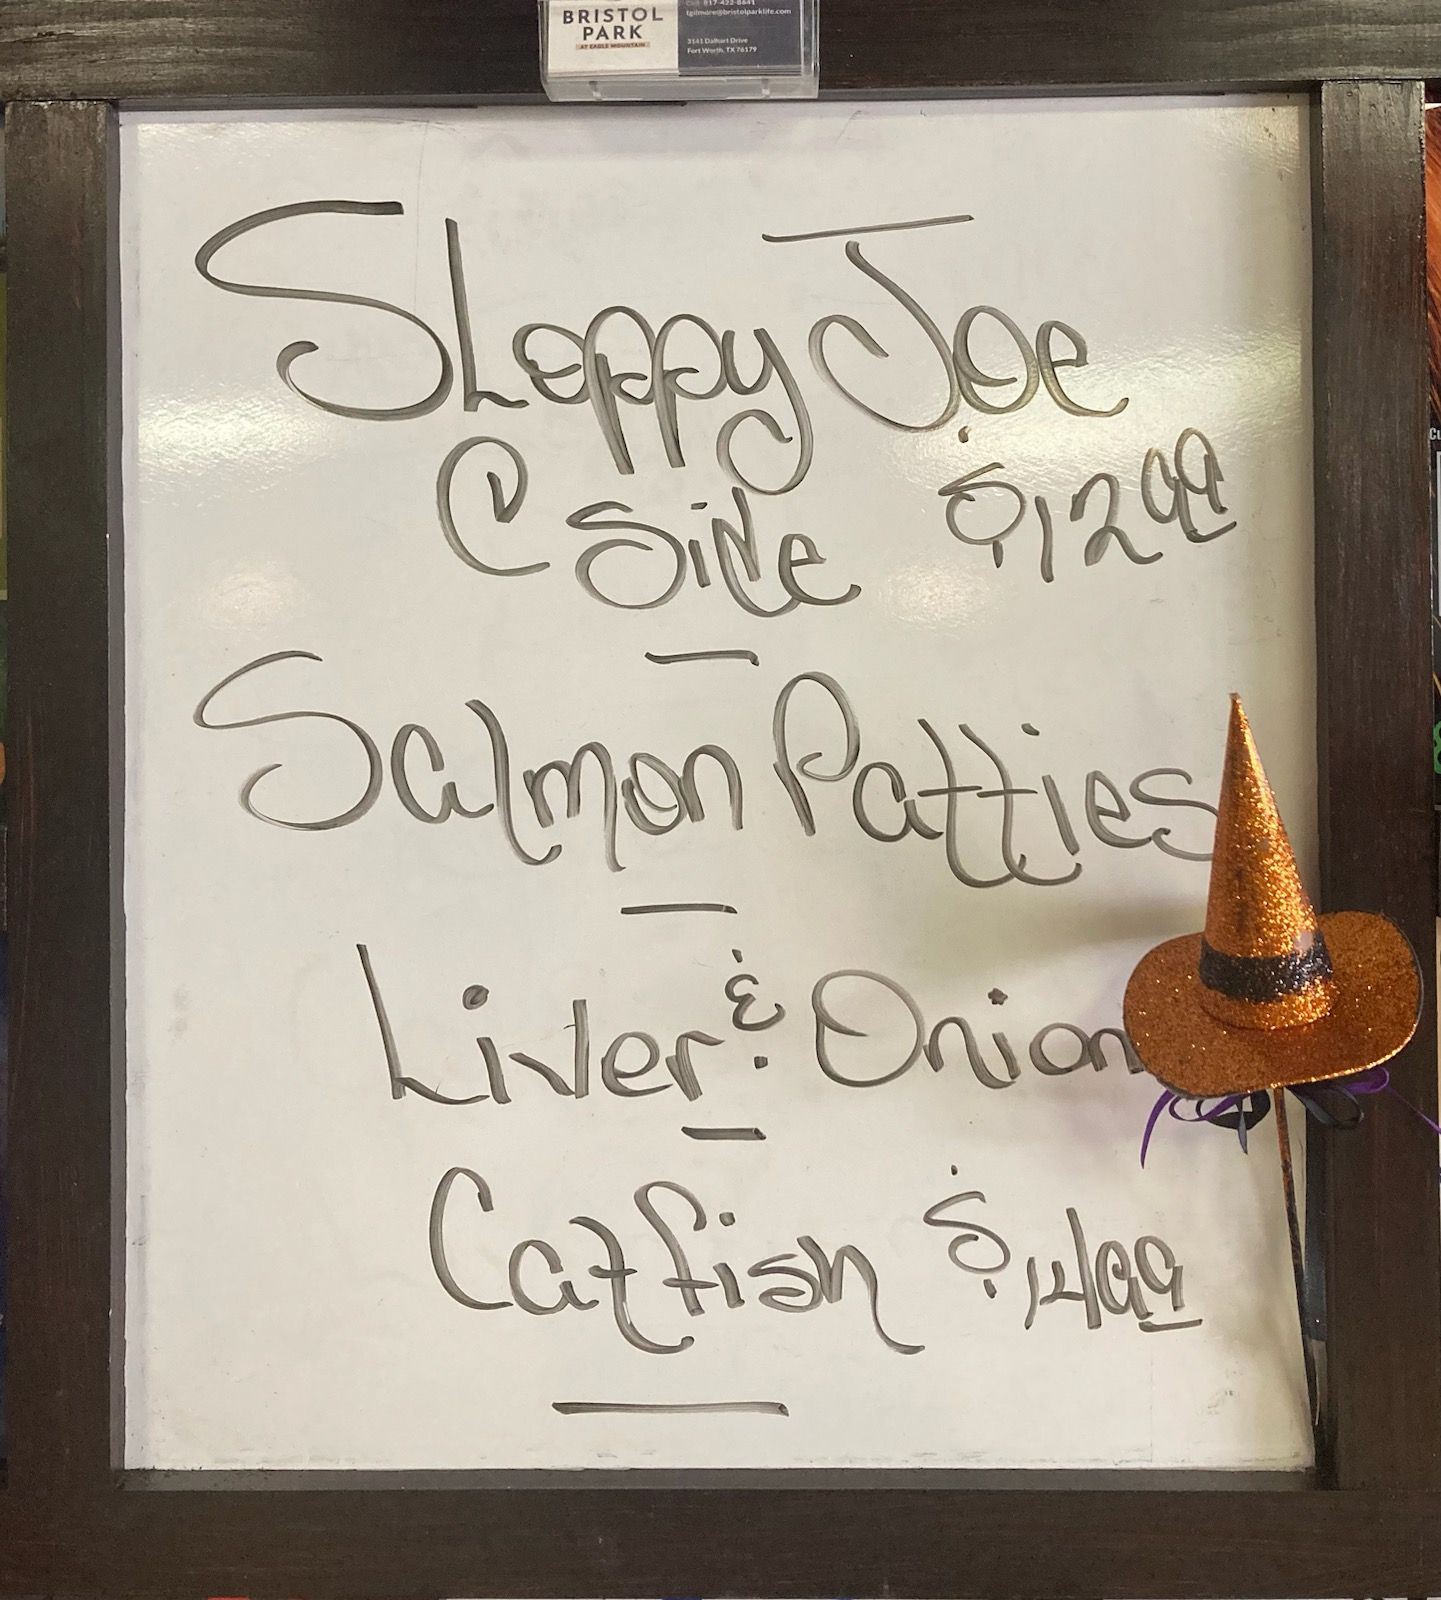 BRISTOL
PARK
AT EAGLE MOUNTAIN
817-422-8641
tgilmore@bristolparklife.com
3141 Dalhart Drive
Fort Worth, TX 76179
Sloppy Joe
C Side $12.99
Salmon Patties
Liver & Onion
Catfish $14.99